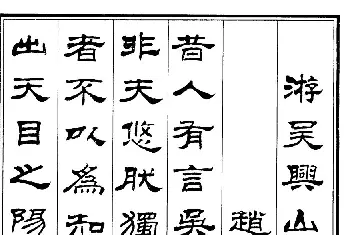 游吳興山
趙
昔人有言吳
非夫悠肰獨
者不以為知
出天目之陽